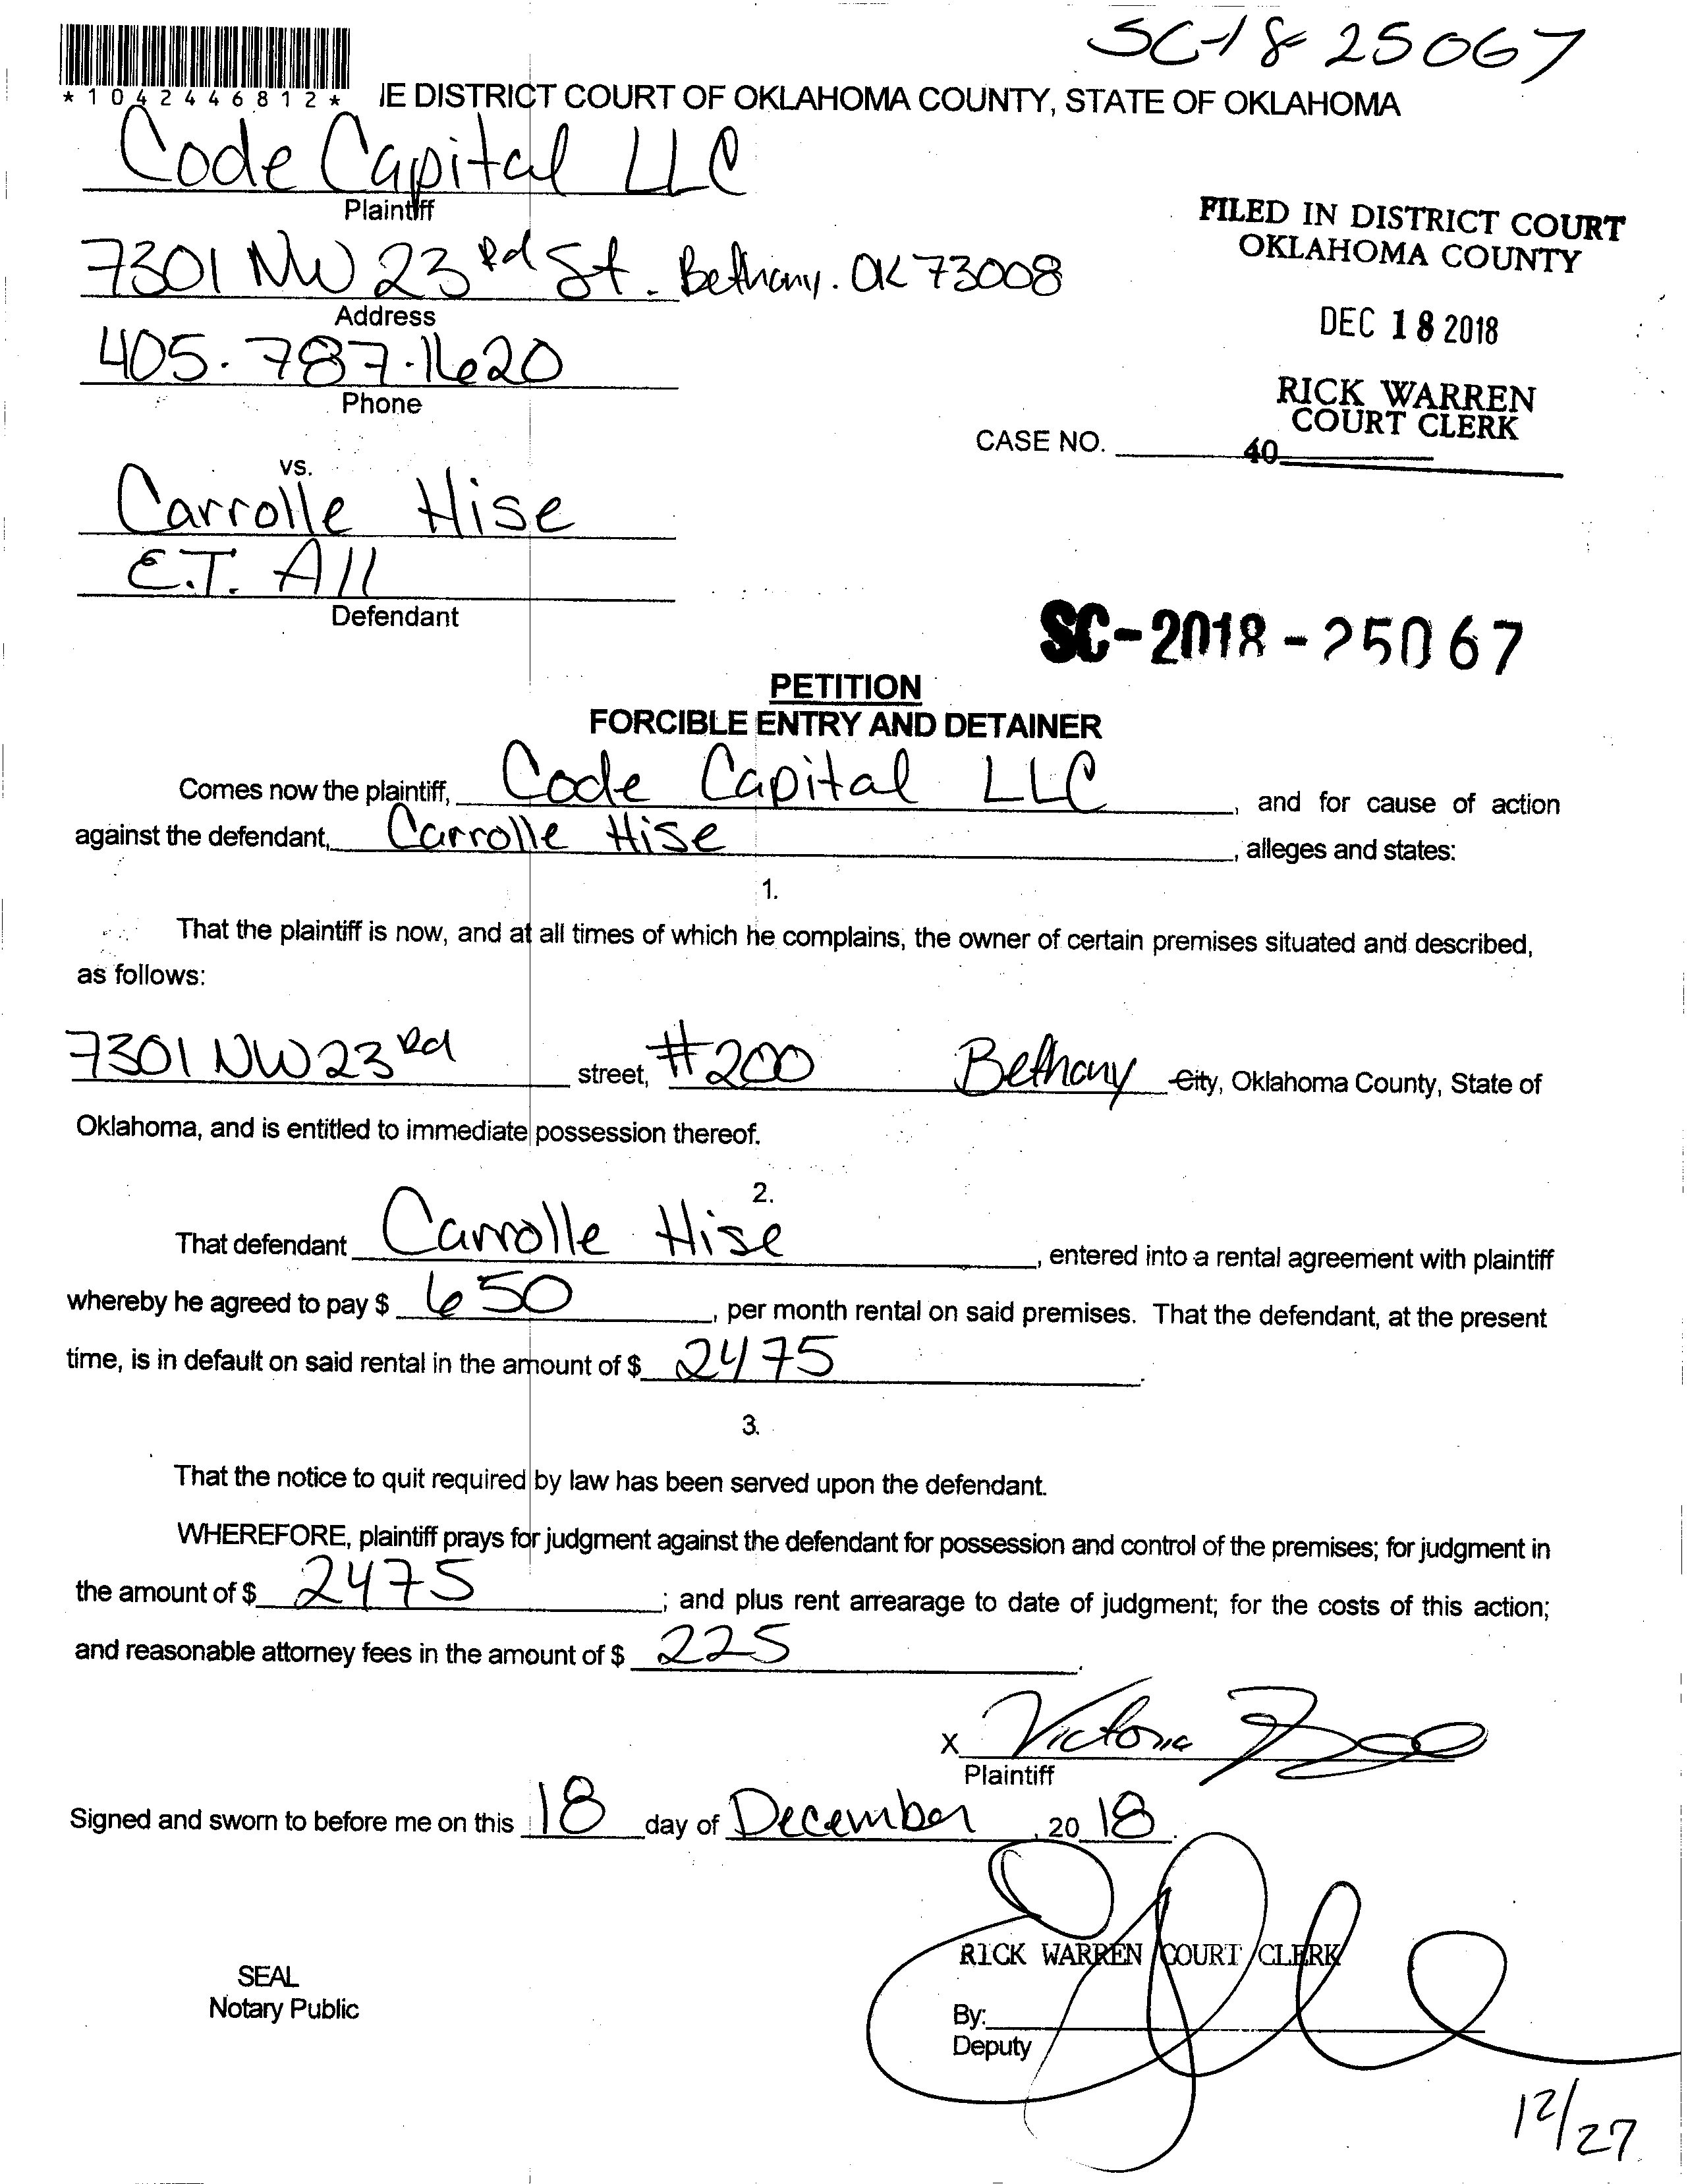 SC-18-25067
*1042446812*
IE DISTRICT COURT OF OKLAHOMA COUNTY, STATE OF OKLAHOMA
Code Capital LLC
Plaintiff
7301 NW 23rd St. Bethany. OK 73008
Address
405.787.1620
Phone
FILED IN DISTRICT COURT
OKLAHOMA COUNTY
DEC 18 2018
RICK WARREN
COURT CLERK
CASE NO. 40
vs.
Carrolle Hise
E.T. All
Defendant
SC-2018-25067
PETITION
FORCIBLE ENTRY AND DETAINER
Comes now the plaintiff, Code Capital LLC, and for cause of action
against the defendant, Carrolle Hise, alleges and states:
1.
That the plaintiff is now, and at all times of which he complains, the owner of certain premises situated and described,
as follows:
7301 NW 23rd street, #200 Bethany City, Oklahoma County, State of
Oklahoma, and is entitled to immediate possession thereof.
2.
That defendant Carrolle Hise, entered into a rental agreement with plaintiff
whereby he agreed to pay $ 650, per month rental on said premises. That the defendant, at the present
time, is in default on said rental in the amount of $ 2475.
3.
That the notice to quit required by law has been served upon the defendant.
WHEREFORE, plaintiff prays for judgment against the defendant for possession and control of the premises; for judgment in
the amount of $ 2475; and plus rent arrearage to date of judgment; for the costs of this action;
and reasonable attorney fees in the amount of $ 225.
X Victoria
Plaintiff
Signed and sworn to before me on this 18 day of December, 20 18.
RICK WARREN COURT CLERK
SEAL
Notary Public
By:
Deputy
12/27